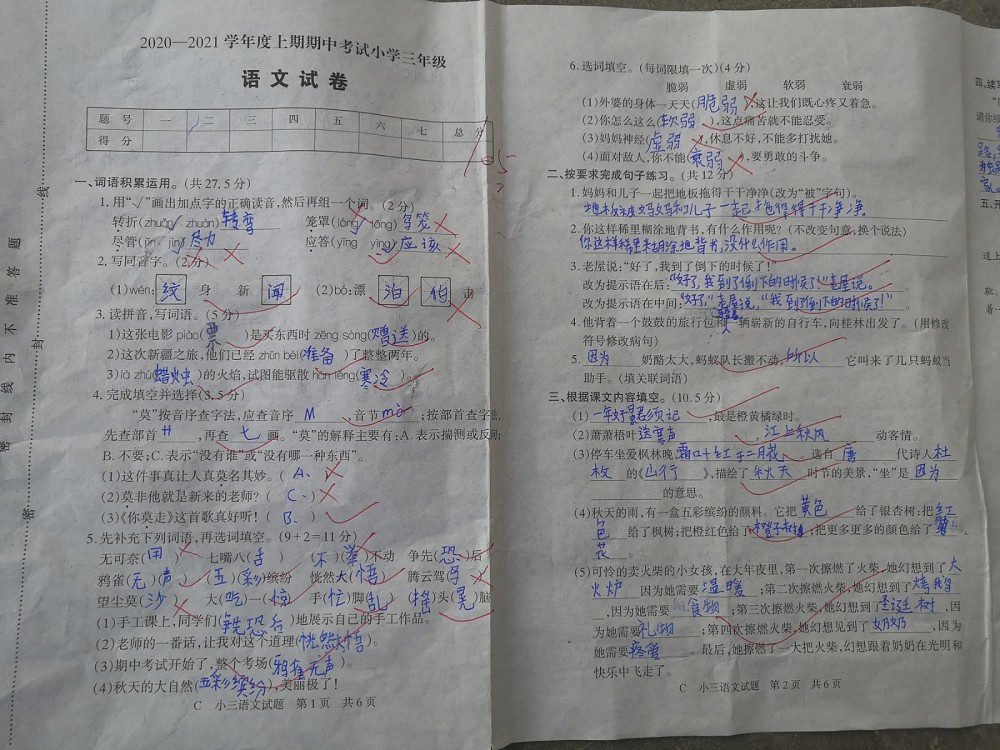 2020—2021学年度上期期中考试小学三年级
语文试卷
题号 一 二 三 四 五 六 七 总分
得分
105
一、词语积累运用。(共27.5分)
1.用“√”画出加点字的正确读音,然后再组一个词。(2分)
转折(zhuǎn zhuàn)转弯 笼罩(lóng lǒng)鸟笼
尽管(jǐn jìn)尽力 应答(yīng yìng)应该
2.写同音字。(2分)
(1)wén:纹 身 新 闻 (2)bó:漂 泊 伯 击
3.读拼音,写词语。(5分)
1)这张电影piào(票)是买东西时zēng sòng(赠送)的。
2)这次新疆之旅,他们已经zhǔn bèi(准备)了整整两年。
3)là zhú(蜡烛)的火焰,试图能驱散hán lěng(寒冷)。
4.完成填空并选择(3.5分)
“莫”按音序查字法,应查音序 M ,音节 mò ;按部首查字
先查部首 艹 ,再查 七 画。“莫”的解释主要有:A.表示揣测或反
B.不要;C.表示“没有谁”或“没有哪一种东西”。
(1)这件事真让人真莫名其妙。( A、)
(2)莫非他就是新来的老师?( C、)
(3)《你莫走》这首歌真好听!( B、)
5.先补充下列词语,再选词填空。(9+2=11分)
无可奈(用) 七嘴八(舌) (不)(举)不动 争先(恐)后
鸦雀(无)(声) (五)(彩)缤纷 恍然大(悟) 腾云驾
望尘莫(沙) 大(吃)一(惊) 手(忙)脚(乱) (摇)头(晃)脑
(1)手工课上,同学们( )地展示自己的手工作品。
(2)老师的一番话,让我对这个道理(恍然大悟)。
(3)期中考试开始了,整个考场(鸦雀无声)。
(4)秋天的大自然(五彩缤纷),美丽极了!
C 小三语文试题 第1页 共6页
6.选词填空。(每词限填一次)(4分)
脆弱 虚弱 软弱 衰弱
(1)外婆的身体一天天(脆弱),这让我们既心疼又着急。
(2)你怎么这么(软弱),这点痛苦就不能忍受。
(3)妈妈神经(虚弱),休息不好,不能多打扰她。
(4)面对敌人,你不能(衰弱),要勇敢的斗争。
二、按要求完成句子练习。(共12分)
1.妈妈和儿子一起把地板拖得干干净净(改为“被”字句)。
地板被妈妈和儿子一起拖得得干干净净
2.你这样稀里糊涂地背书,有什么作用呢?(不改变句意,换个说法)
你这样稀里糊涂地背书,没什么作用。
3.老屋说:“好了,我到了倒下的时候了!”
改为提示语在后:“好了,我到了倒下的时候了!”老屋说。
改为提示语在中间:“好了,”老屋说,“我到了倒下的时候了!”
4.他背着一个鼓鼓的旅行包和一辆崭新的自行车,向桂林出发了。(用修改
符号修改病句)
5. 因为 奶酪太大,蚂蚁队长搬不动, 所以 它叫来了几只蚂蚁当
助手。(填关联词语)
三、根据课文内容填空。(10.5分)
(1)一年好景君须记 ,最是橙黄橘绿时。
(2)萧萧梧叶送寒声 , 江上秋风 动客情。
(3)停车坐爱枫林晚,霜叶红于二月花 。选自 唐 代诗人杜
枚 的《山行 》,描绘了 秋天 时节的美景,“坐”是 因为
的意思。
(4)秋天的雨,有一盒五彩缤纷的颜料。它把 黄色 给了银杏树;把 红
色 给了枫树;把橙红色给了 ;把更多更多的颜色给了
花 。
(5)可怜的卖火柴的小女孩,在大年夜里,第一次擦燃了火柴,她幻想到了 大
火炉 因为她需要 温暖 ;第二次擦燃火柴,她幻想到了 烤鹅
,因为她需要 食物 ;第三次擦燃火柴,她幻想到 圣诞树 ,因
为她需要 礼物 ;第四次擦燃火柴,她幻想见到了 奶奶 ,因为
她需要 疼爱 。最后,她擦燃了一大把火柴,幻想跟着奶奶在光明和
快乐中飞走了。
C 小三语文试题 第2页 共6页
密 封 线 内 不 准 答 题
密 封 线
四、续写
请你
五、